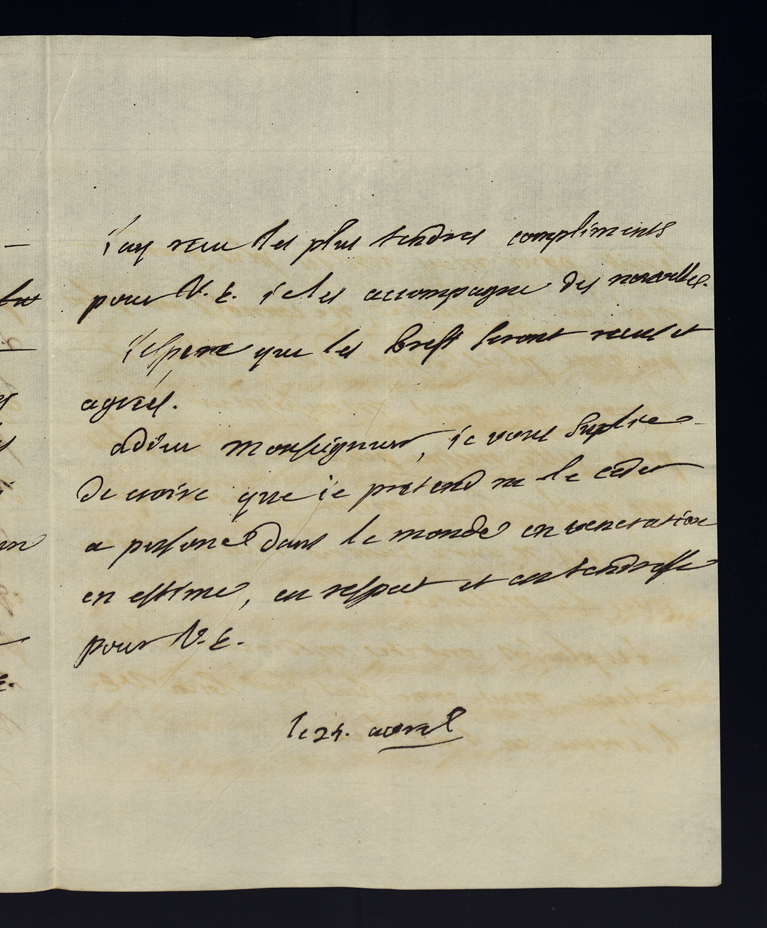 J'ay receu les plus tendres compliments
pour V. E. je les accompagne des nouvelles.
J'espere que les brefs seront receus et
agreés.
adieu monseigneur, je vous suplie
de croire que je pretend ne le ceder
a persone dans le monde en veneration
en estime, en respect et en tendresse
pour V. E.
le 24. avril